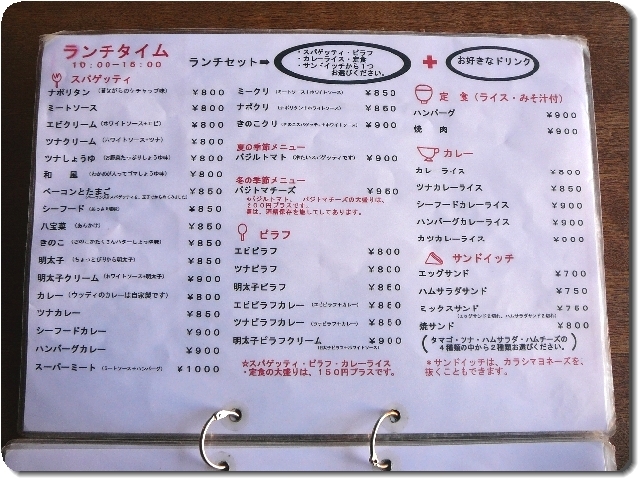 ランチタイム
10:00-16:00
ランチセット➡
・スパゲッティ・ピラフ
・カレーライス・定食
・サンドイッチから1つ
お選びください。
+
お好きなドリンク
スパゲッティ
ナポリタン (昔ながらのケチャップ味) ¥800
ミートソース ¥800
エビクリーム (ホワイトソース+エビ) ¥800
ツナクリーム (ホワイトソース+ツナ) ¥800
ツナしょうゆ ¥850
和 風 ¥800
ベーコンとたまご ¥850
シーフード ¥850
八宝菜 (あんかけ) ¥850
きのこ ¥850
明太子 (ちょっとぴり辛明太子) ¥850
明太子クリーム (ホワイトソース+明太子) ¥900
カレー (ウッティのカレーは自家製です) ¥800
ツナカレー ¥850
シーフードカレー ¥900
ハンバーグカレー ¥900
スーパーミート (ミートソース+ハンバーグ) ¥1000
ミークリ (ミートソース+ホワイトソース) ¥850
ナポクリ (ナポリタン+ホワイトソース) ¥850
きのこクリ ¥900
夏の季節メニュー
バジルトマト (冷たいスパゲッティです) ¥900
冬の季節メニュー
バジトマチーズ ¥950
*バジルトマト、バジトマチーズの大盛りは、
200円プラスです。
ピラフ
エビピラフ ¥800
ツナピラフ ¥800
明太子ピラフ ¥850
エビピラフカレー (エビピラフ+カレー) ¥850
ツナピラフカレー (ツナピラフ+カレー) ¥850
明太子ピラフクリーム ¥900
(明太子ピラフ+ホワイトソース)
☆スパゲッティ・ピラフ・カレーライス
・定食の大盛りは、150円プラスです。
定 食 (ライス・みそ汁付)
ハンバーグ ¥900
焼 肉 ¥900
カレー
カレーライス ¥800
ツナカレーライス ¥850
シーフードカレーライス ¥900
ハンバーグカレーライス ¥900
カツカレーライス
サンドイッチ
エッグサンド ¥700
ハムサラダサンド ¥750
ミックスサンド ¥750
(エッグサンドを2切れ、ハムサラダサンドを2切れ)
焼サンド ¥800
(タマゴ・ツナ・ハムサラダ・ハムチーズの
4種類の中から2種類お選びください。)
*サンドイッチは、カラシマヨネーズを、
抜くこともできます。